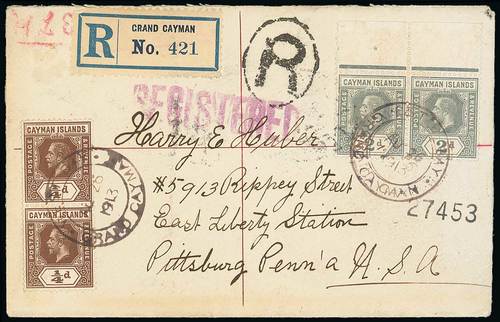 GRAND CAYMAN
R No. 421
R
REGISTERED
CAYMAN ISLANDS
POSTAGE
REVENUE
2d
CAYMAN ISLANDS
POSTAGE
REVENUE
2d
CAYMAN ISLANDS
POSTAGE
REVENUE
¼d
CAYMAN ISLANDS
POSTAGE
REVENUE
¼d
GRAND CAYMAN
26
1913
Harry E Huber
#5913 Rippey Street
East Liberty Station
Pittsburg Penn'a U.S.A
27453